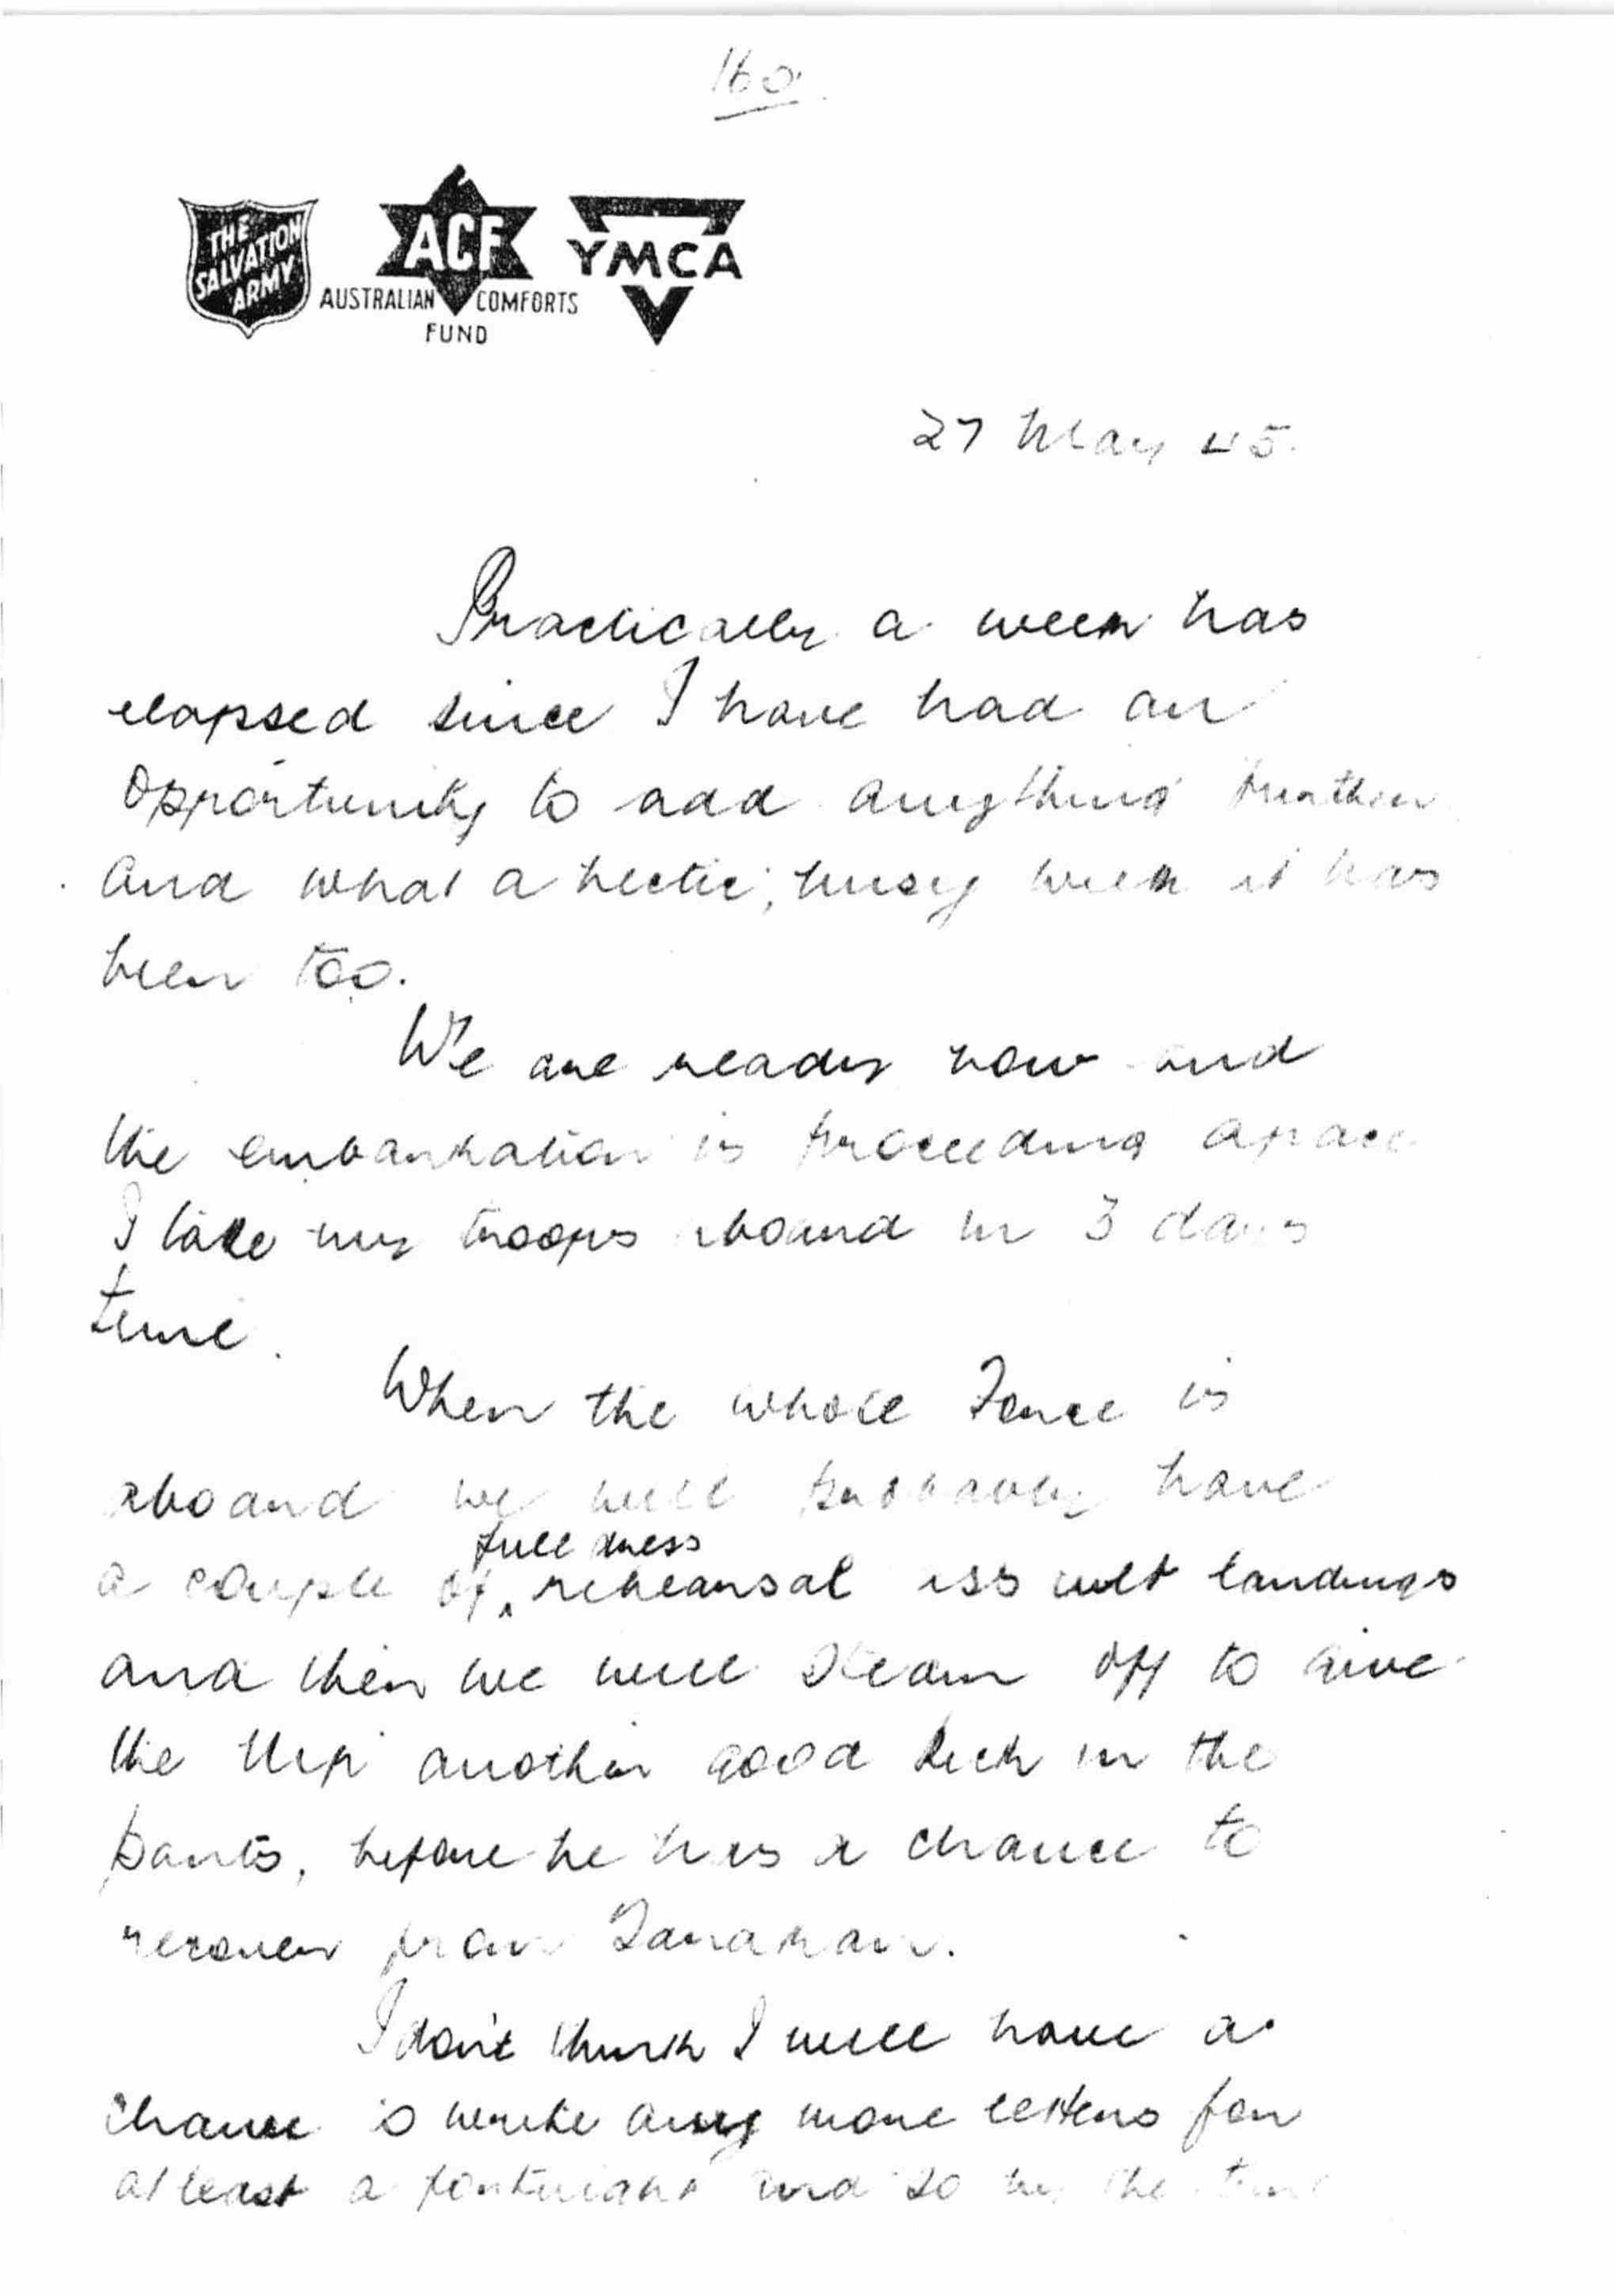 160.
THE SALVATION ARMY
ACF
AUSTRALIAN COMFORTS
FUND
YMCA
27 May 45.
Practically a week has
elapsed since I have had an
opportunity to add anything further
And what a hectic, busy week it has
been too.
We are ready now and
the embarkation is proceeding apace
I take my troops aboard in 3 days
time.
When the whole Force is
aboard we will probably have
full dress
a couple of ‸ rehearsal assault landings
and then we will steam off to give
the Nip another good kick in the
pants, before he has a chance to
recover from Tarakan.
I don't think I will have a
chance to write any more letters for
at least a fortnight and so by the time